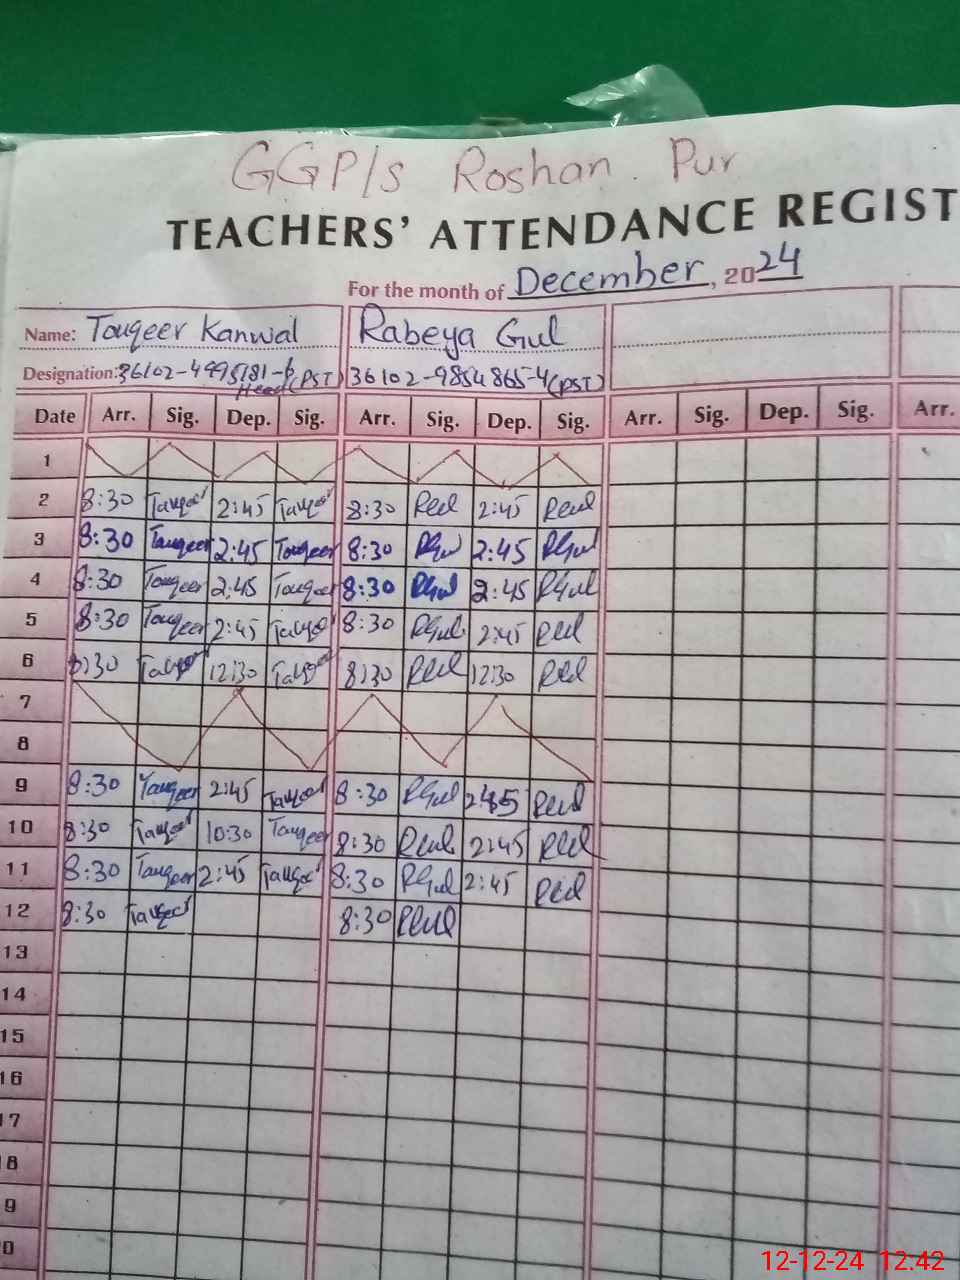 GGP/s Roshan Pur
TEACHERS' ATTENDANCE REGIST
For the month of December, 2024
Name: Touqeer Kanwal Rabeya Gul
Designation: Head (PST) 36102-9854865-4 (PST)
Date Arr. Sig. Dep. Sig. Arr. Sig. Dep. Sig. Arr. Sig. Dep. Sig. Arr.
1
2 8:30 Touqeer 2:45 Touqeer 8:30 RGul 2:45 RGul
3 8:30 Touqeer 2:45 Touqeer 8:30 RGul 2:45 RGul
4 8:30 Touqeer 2:45 Touqeer 8:30 RGul 2:45 RGul
5 8:30 Touqeer 2:45 Touqeer 8:30 RGul 2:45 RGul
6 8:30 Touqeer 12:30 Touqeer 8:30 RGul 12:30 RGul
7
8
9 8:30 Touqeer 2:45 Touqeer 8:30 RGul 2:45 RGul
10 8:30 Touqeer 10:30 Touqeer 8:30 RGul 2:45 RGul
11 8:30 Touqeer 2:45 Touqeer 8:30 RGul 2:45 RGul
12 8:30 Touqeer 8:30 RGul
13
14
15
16
17
18
9
0
12-12-24 12:42